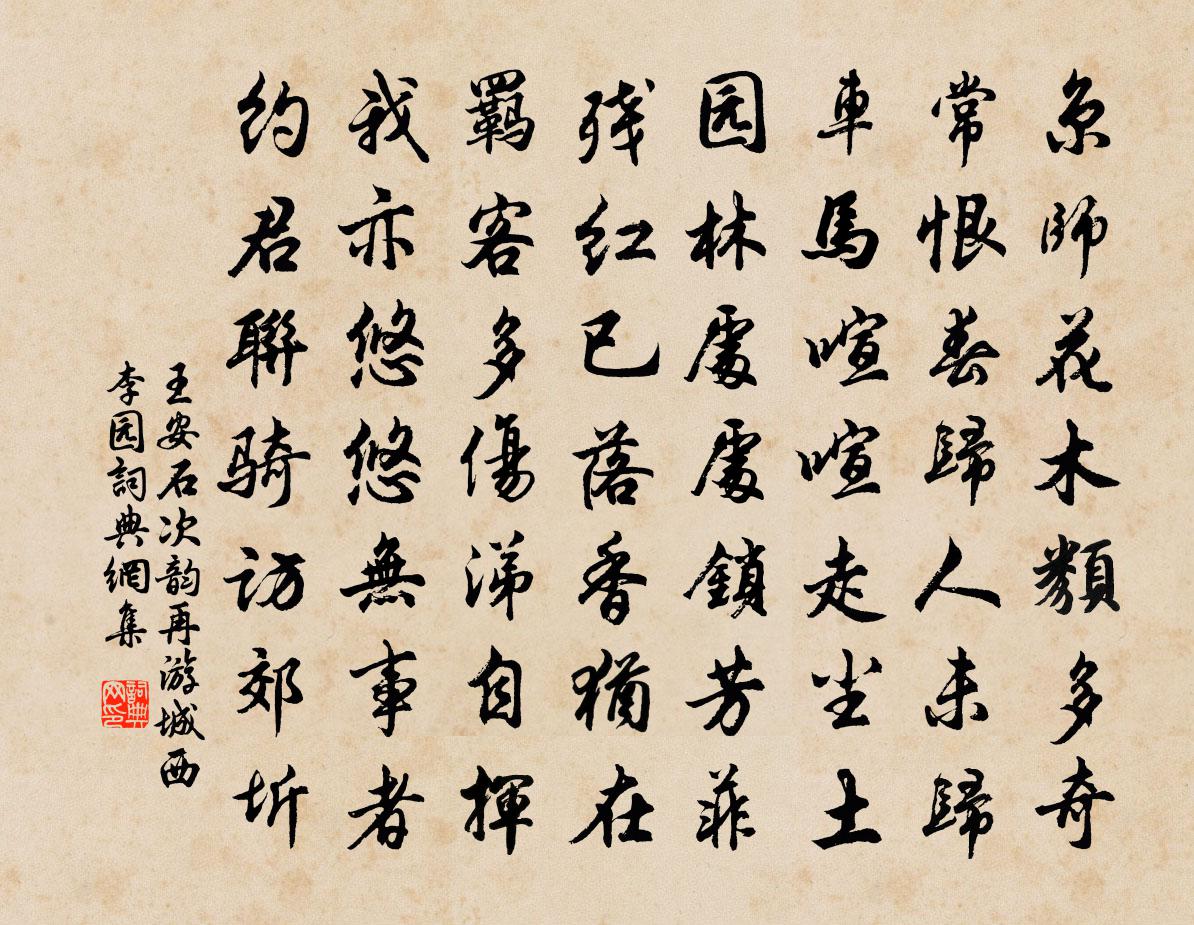 京師花木類多奇
常恨春歸人未歸
車馬喧喧走尘土
园林處處鎖芳菲
残红已落香猶在
羈客多傷涕自揮
我亦悠悠無事者
約君聯骑访郊圻
王安石次韵再游城西
李园詞典網集
詞典网印